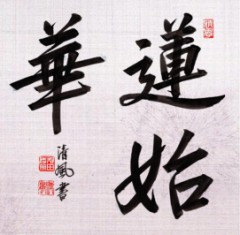 蓮始
華
清風書